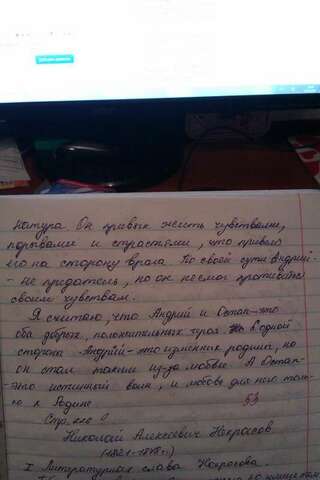 натура. Он привык жить чувствами,
порывами и страстями, что привело
его на сторону врага. По своей сути Андрий-
- не предатель, но он не смог противится
своим чувствам.
Я считаю, что Андрий и Остап-это
оба добрых, положительных героя. С одной
стороны Андрий-это изменник родины, но
он стал таким из-за любви. А Остап-
это истинный воин, и любовь для него толь-
ко к Родине.
Стр.
Николай Алексеевич Некрасов
(1821-1878гг.)
I Литературная слава Некрасова.